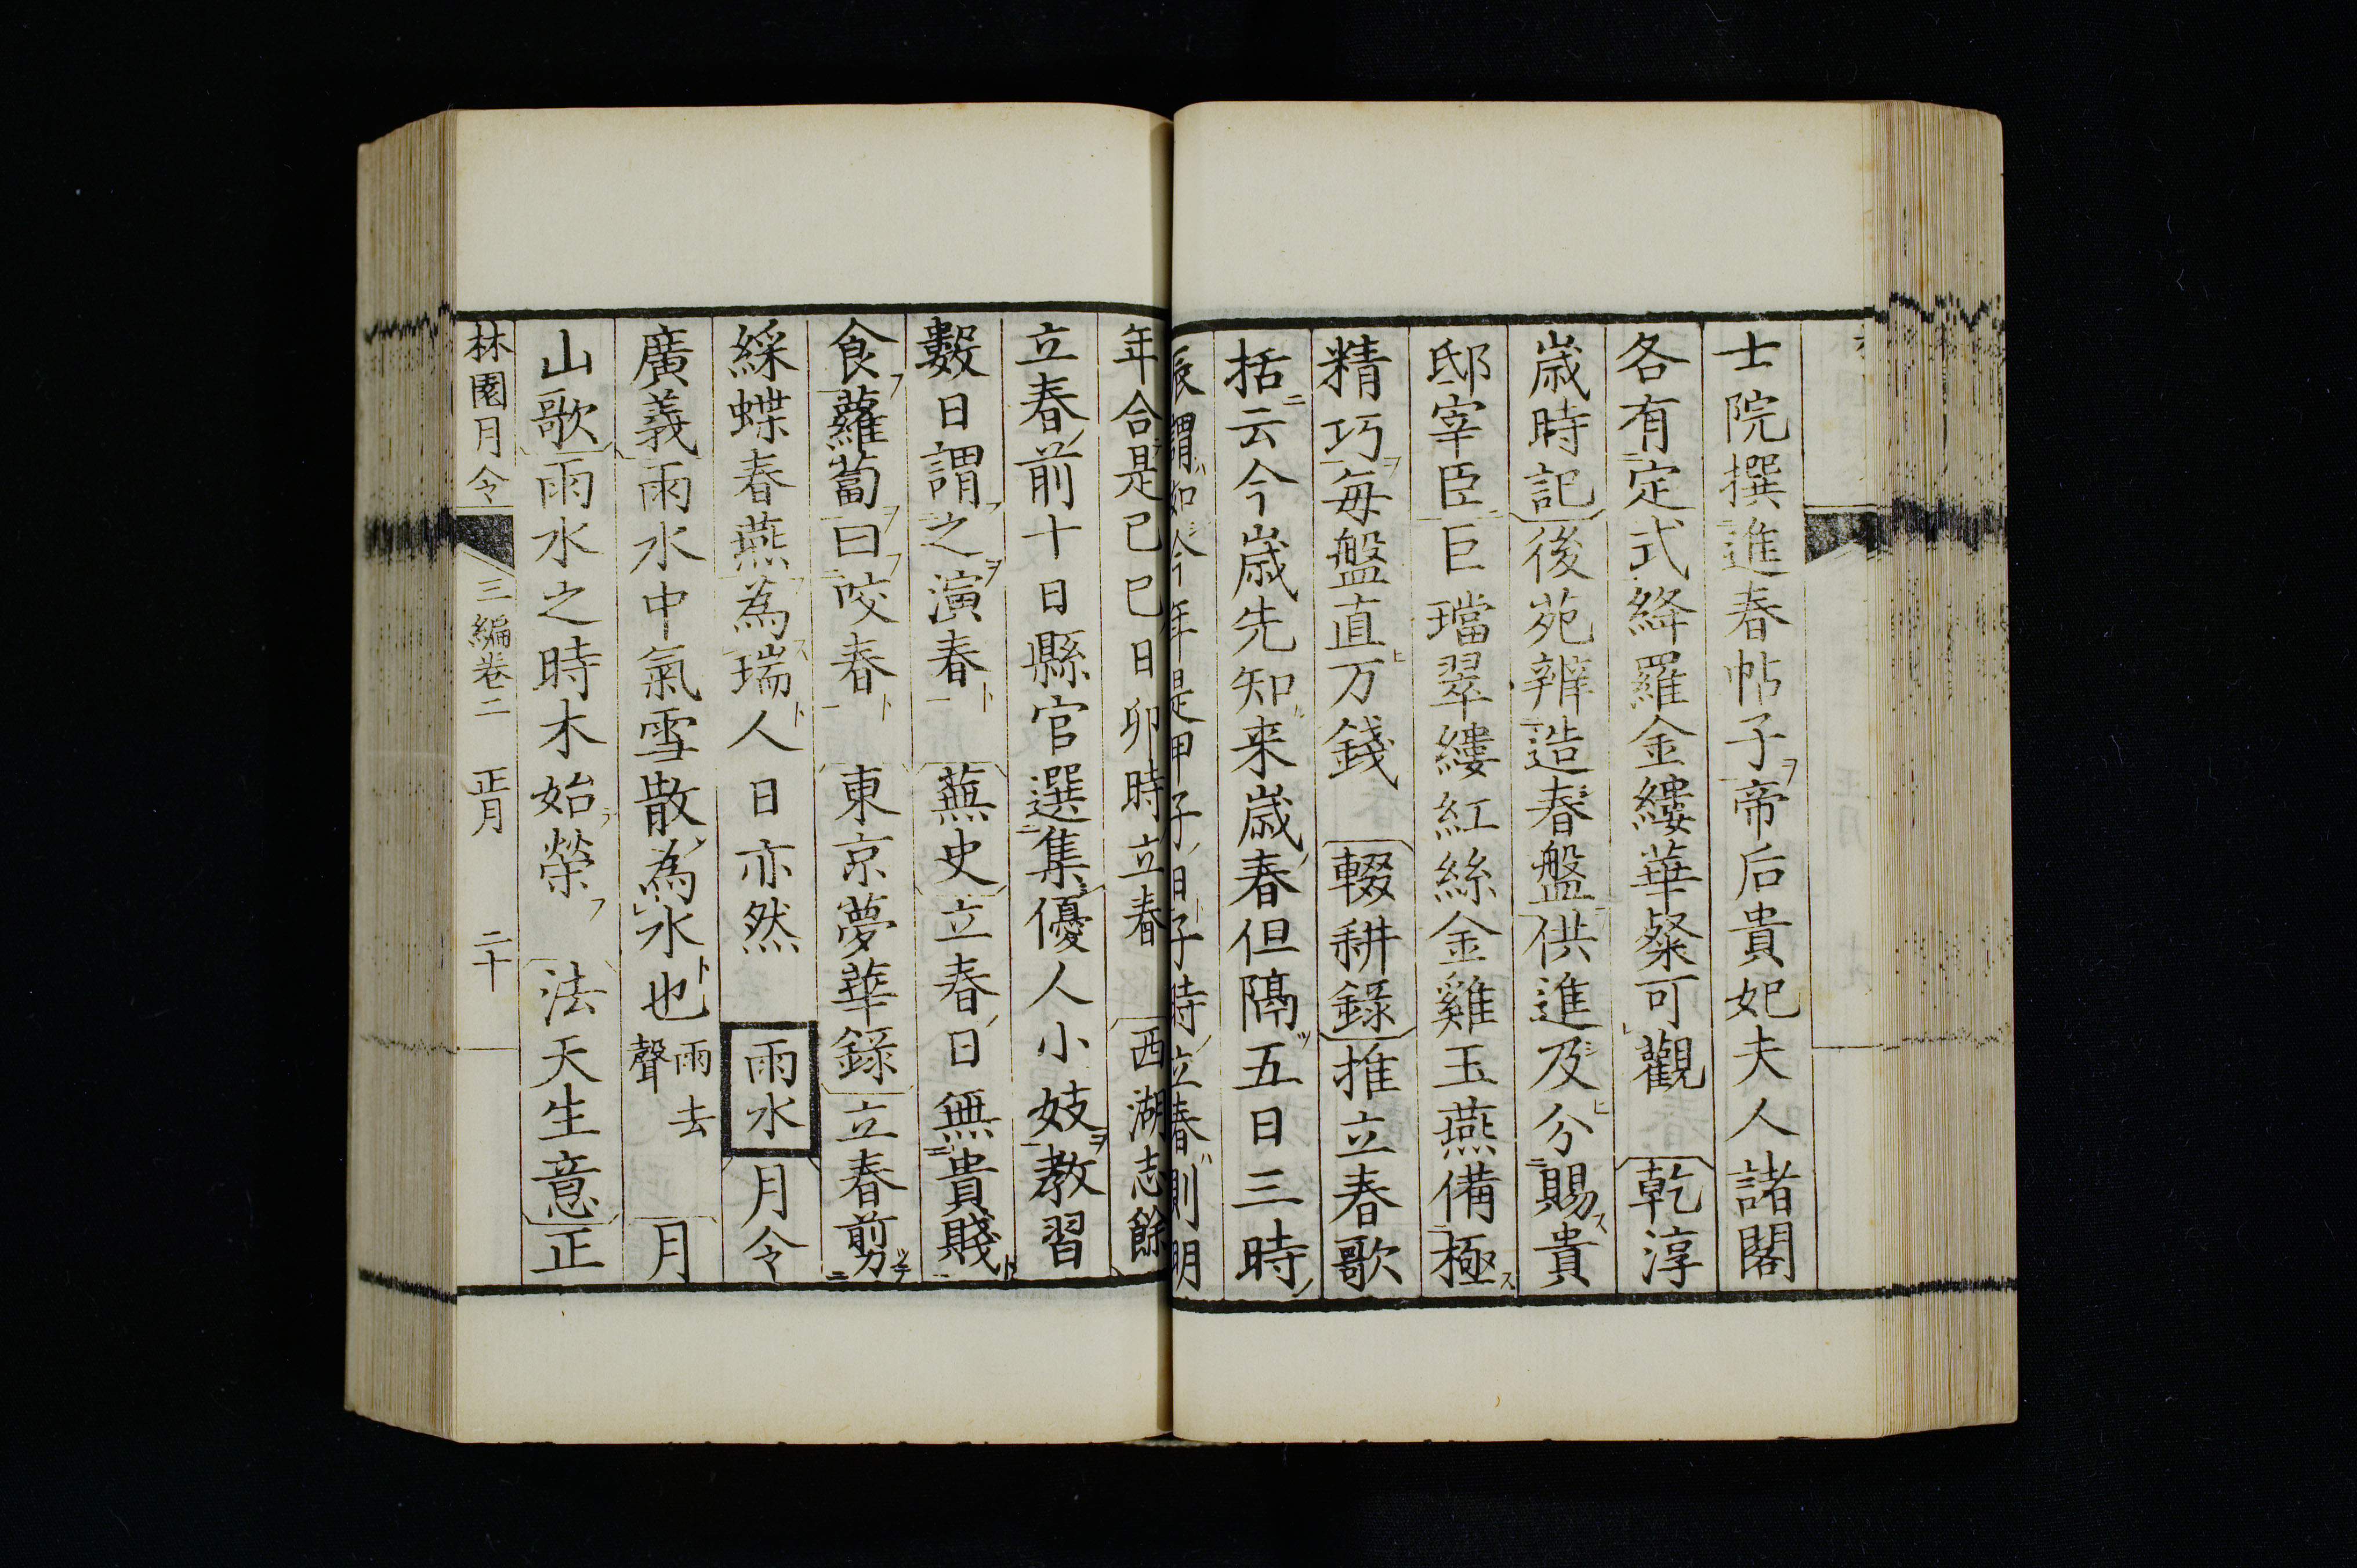 士院撰進春帖子帝后貴妃夫人諸閣
各有定式絳羅金縷華粲可觀 乾淳
歳時記後苑辨造春盤供進及分賜貴
邸宰臣巨璫翠縷紅絲金雞玉燕備極
精巧毎盤直万錢 輟耕錄推立春歌
括云今歳先知来歳春但隔五日三時
辰謂如今年是甲子日子時立春則明
年合是己巳日卯時立春 西湖志餘
立春前十日縣官選集優人小妓教習
數日謂之演春 蕪史立春日無貴賤
食蘿蔔曰咬春 東京夢華錄立春剪
綵蝶春燕為瑞人日亦然 雨水月令
廣義雨水中氣雪散為水也雨去聲 月
山歌雨水之時木始榮 法天生意正
林園月令 三編巻二 正月 二十